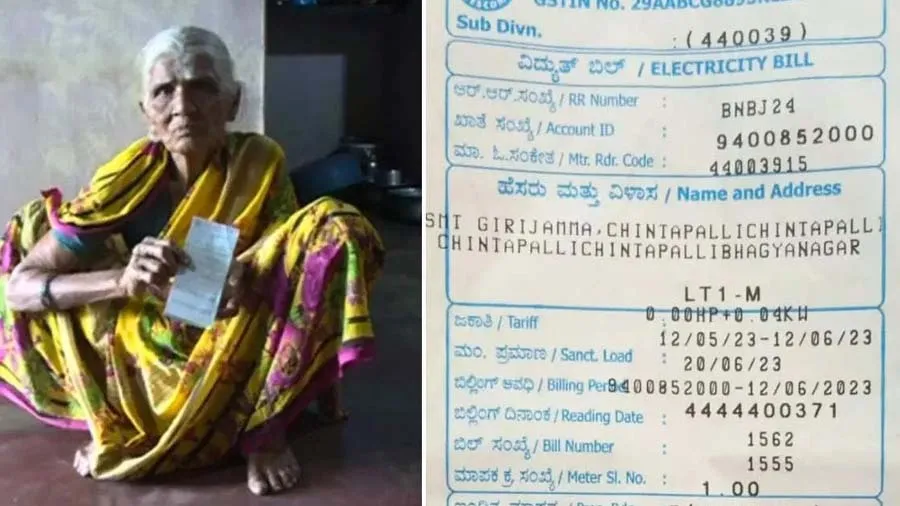 GSTIN No. 29AABCG8895R
Sub Divn. :(440039)
ವಿದ್ಯುತ್ ಬಿಲ್ / ELECTRICITY BILL
ಆರ್.ಆರ್.ಸಂಖ್ಯೆ / RR Number : BNBJ24
ಖಾತೆ ಸಂಖ್ಯೆ / Account ID : 9400852000
ಮಾ. ಓ.ಸಂಕೇತ / Mtr. Rdr. Code : 44003915
ಹೆಸರು ಮತ್ತು ವಿಳಾಸ / Name and Address
SMT GIRIJAMMA,CHINTAPALLICHINTAPALLI
CHINTAPALLICHINTAPALLIBHAGYANAGAR
LT1-M
0.00HP+0.04KW
ಜಕಾತಿ / Tariff : 12/05/23-12/06/23
ಮಂ. ಪ್ರಮಾಣ / Sanct. Load : 20/06/23
ಬಿಲ್ಲಿಂಗ್ ಅವಧಿ / Billing Per 9400852000-12/06/2023
ಬಿಲ್ಲಿಂಗ್ ದಿನಾಂಕ / Reading Date : 4444400371
ಬಿಲ್ ಸಂಖ್ಯೆ / Bill Number : 1562
ಮಾಪಕ ಕ್ರ. ಸಂಖ್ಯೆ / Meter Sl. No. : 1555
1.00